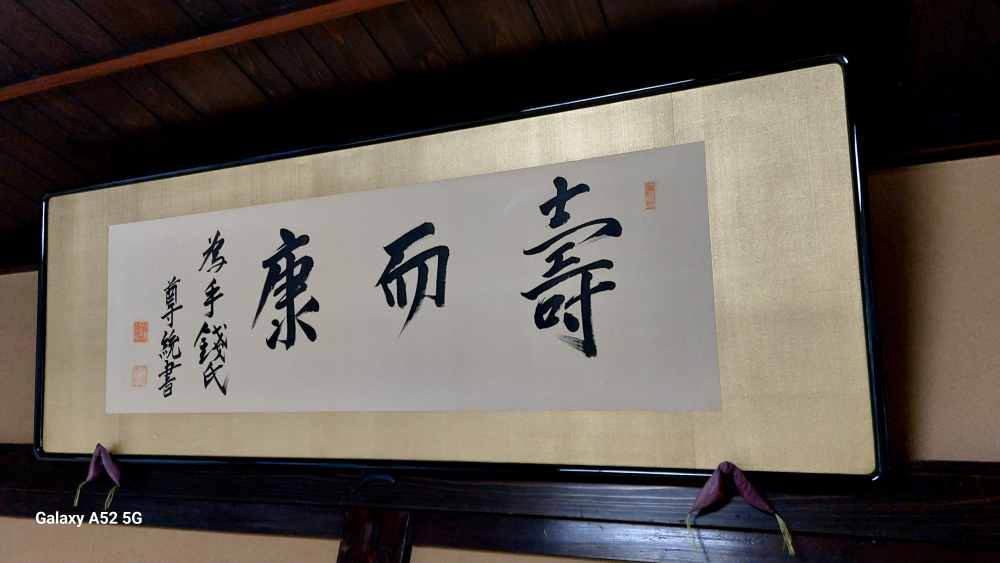 壽而康
為手錢氏
尊統書
Galaxy A52 5G